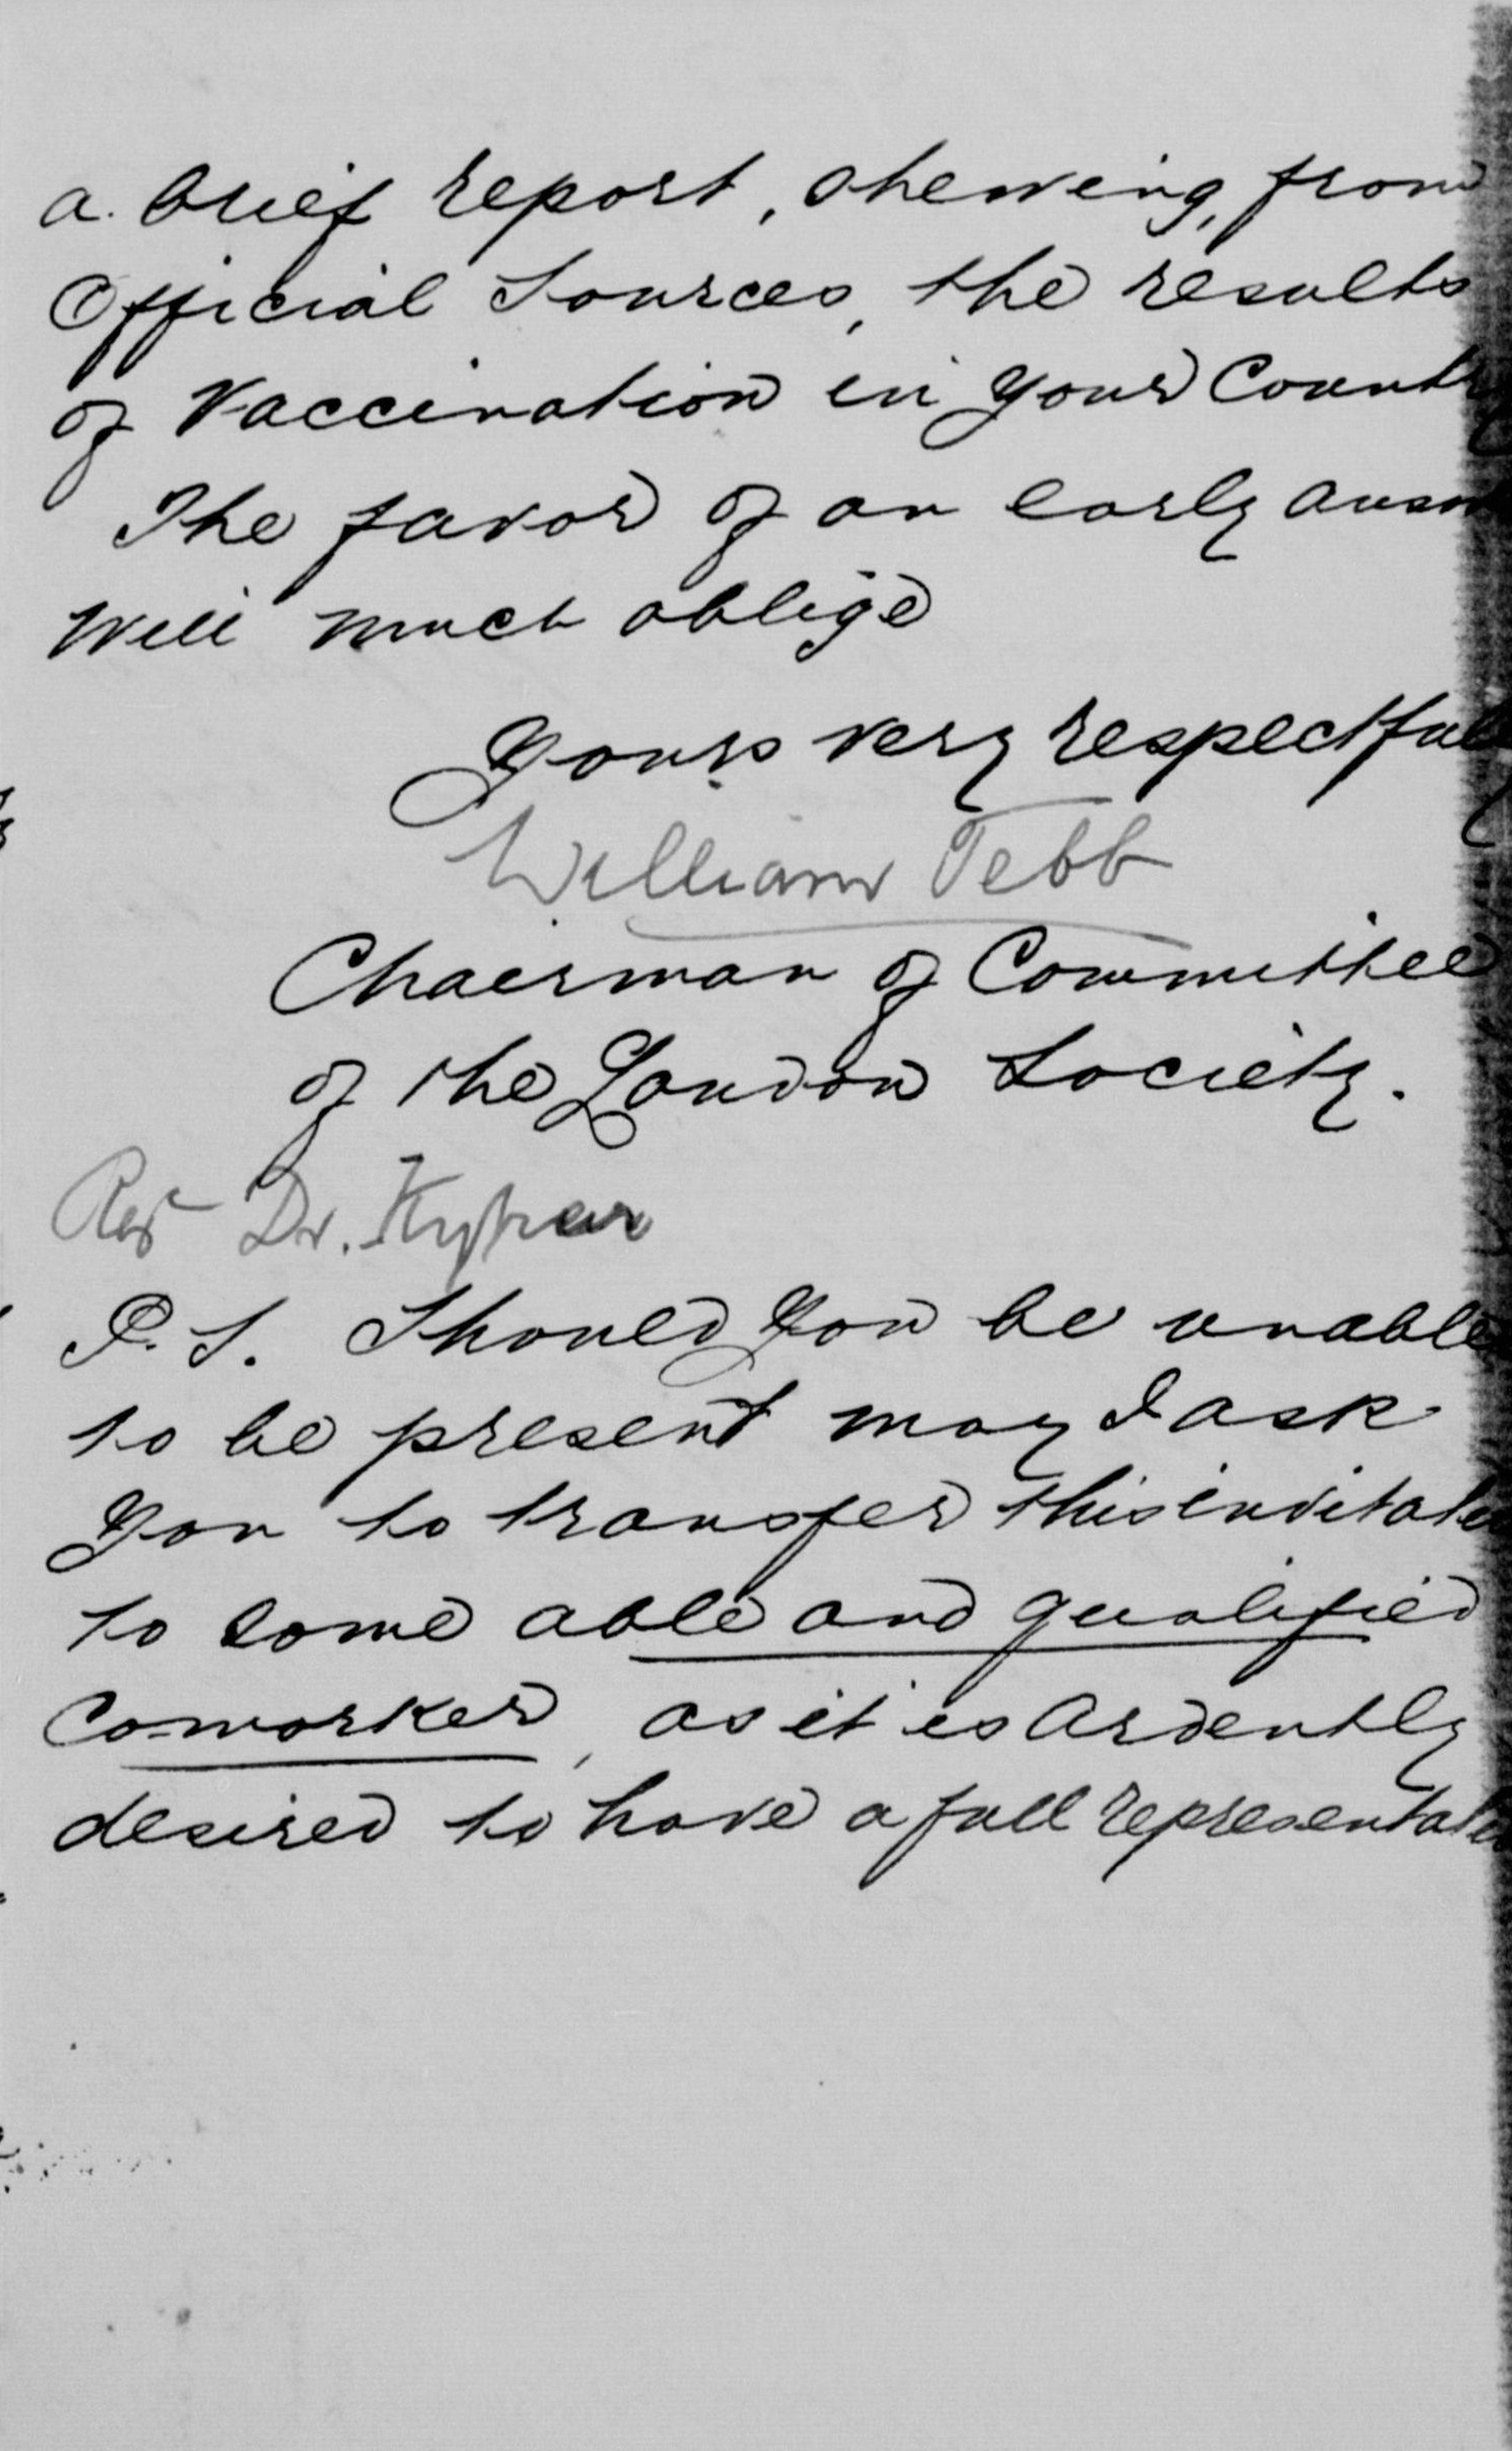 a. brief report, shewing, from
Official Sources, the results
of Vaccination in your Country
The favor of an early answ
will much oblige
Yours very respectful
William Tebb
Chairman of Committee
of the London Society.
Rev Dr. Kuyper
P.S. Should you be unable
to be present may I ask
you to transfer this invitati
to some able and qualified
Co-worker, as it is Ardently
desired to have a full representati